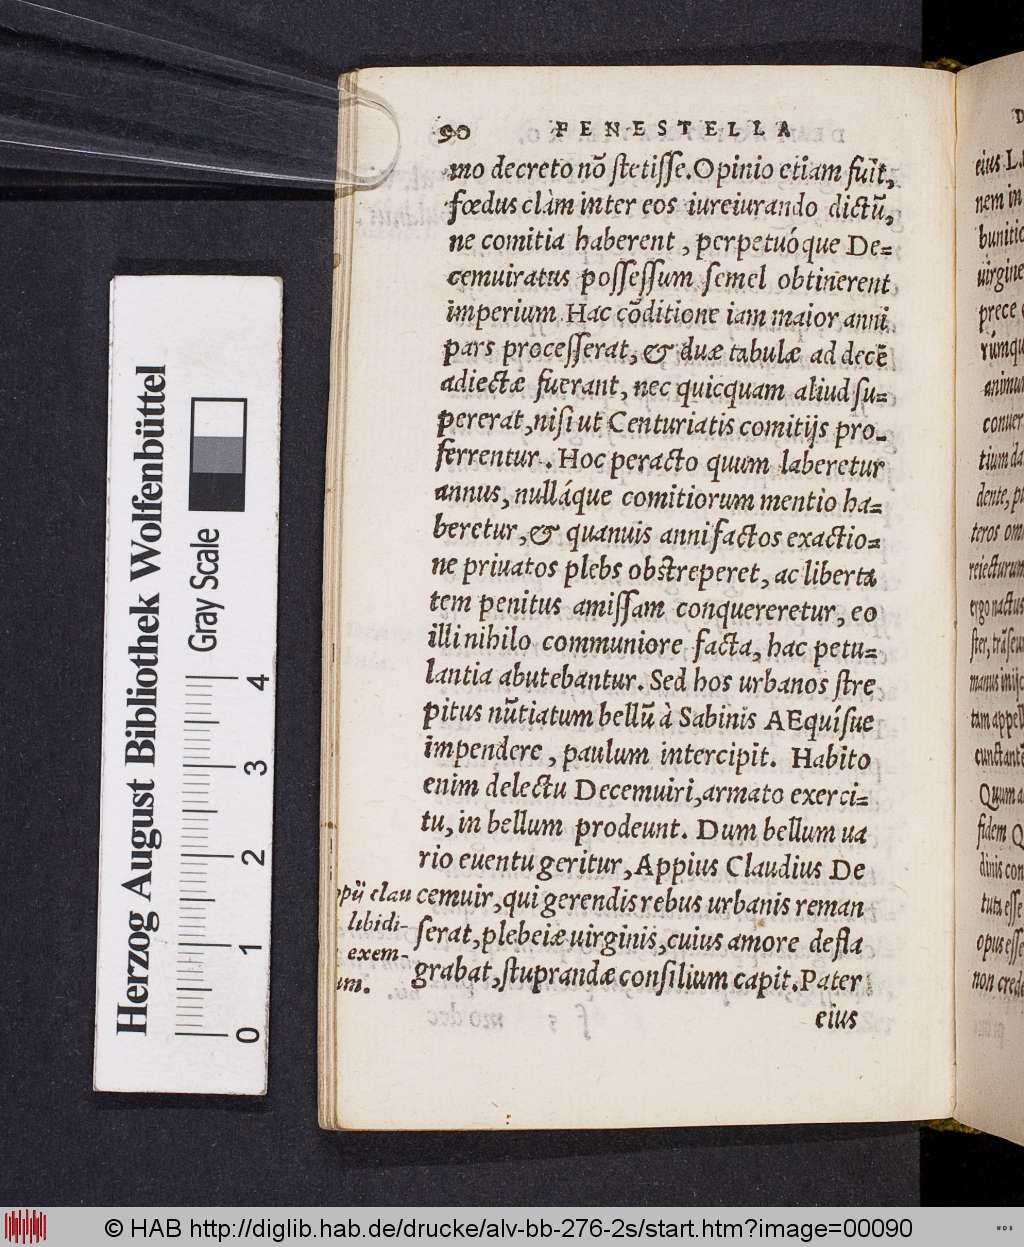 90 FENESTELLA
mo decreto nō ſtetiſſe. Opinio etiam fuit,
fœdus clàm inter eos iureiurando dictū,
ne comitia haberent, perpetuóque De=
cemuiratus poſſeſſum ſemel obtinerent
imperium. Hac cōditione iam maior anni
pars proceſſerat, & duæ tabulæ ad decē
adiectæ fuerant, nec quicquam aliud ſu=
pererat, niſi ut Centuriatis comitijs pro-
ferrentur. Hoc peracto quum laberetur
annus, nulláque comitiorum mentio ha=
beretur, & quanuis anni factos exactio=
ne priuatos plebs obſtreperet, ac liberta
tem penitus amiſſam conquereretur, eo
illi nihilo communiore facta, hac petu=
lantia abutebantur. Sed hos urbanos ſtre
pitus nūtiatum bellū à Sabinis AEquíſue
impendere, paulum intercipit. Habito
enim delectu Decemuiri, armato exerci=
tu, in bellum prodeunt. Dum bellum ua
rio euentu geritur, Appius Claudius De
cemuir, qui gerendis rebus urbanis reman
ſerat, plebeiæ uirginis, cuius amore defla
grabat, ſtuprandæ conſilium capit. Pater
eius
ppij clau
libidi-
exem-
um.
eius
nem in
prece
animu
conuer
tium da
dente, p
reiecturum
ergo nactus
tam appell
cunctant
Quum a
fidem Q
dinis con
tuta eſſe
opus eſſe
non crede
Herzog August Bibliothek Wolfenbüttel
Gray Scale
0 1 2 3 4
© HAB http://diglib.hab.de/drucke/alv-bb-276-2s/start.htm?image=00090